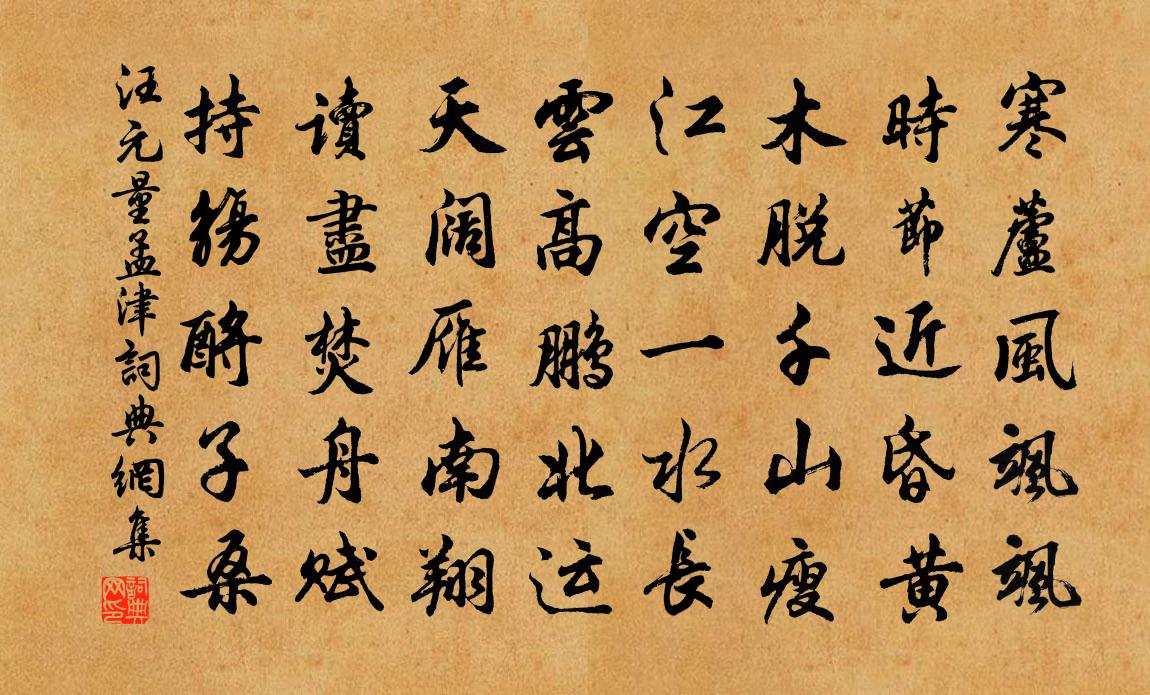 寒蘆風颯颯
時節近昏黄
木脱千山瘦
江空一水長
雲高鵬北运
天阔雁南翔
讀盡焚舟賦
持觴酹子桑
汪元量孟津詞典網集
詞典网印